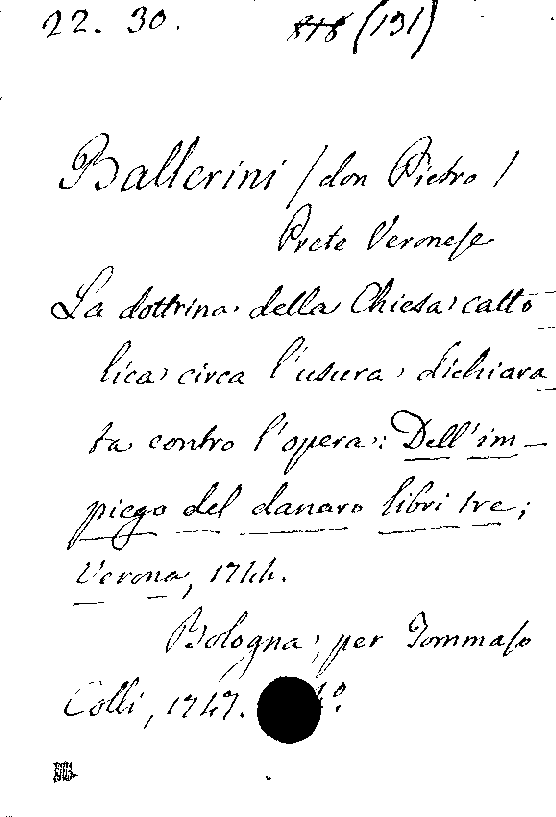 22. 30. 818 (131)
Ballerini (don Pietro)
Prete Veronese
La dottrina della Chiesa catto
lica circa l'usura dichiara
ta contro l'opera: Dell'im-
piego del danaro libri tre;
Verona, 1744.
Bologna, per Tommaso
Colli, 1747. 4º